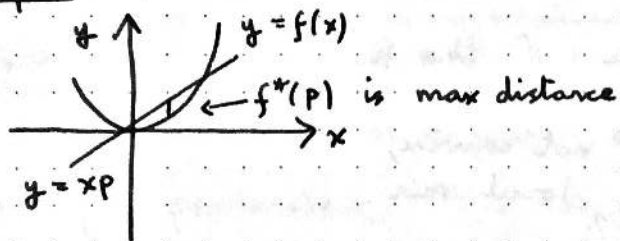 y
y = f(x)
f*(p) is max distance
x
y = xp